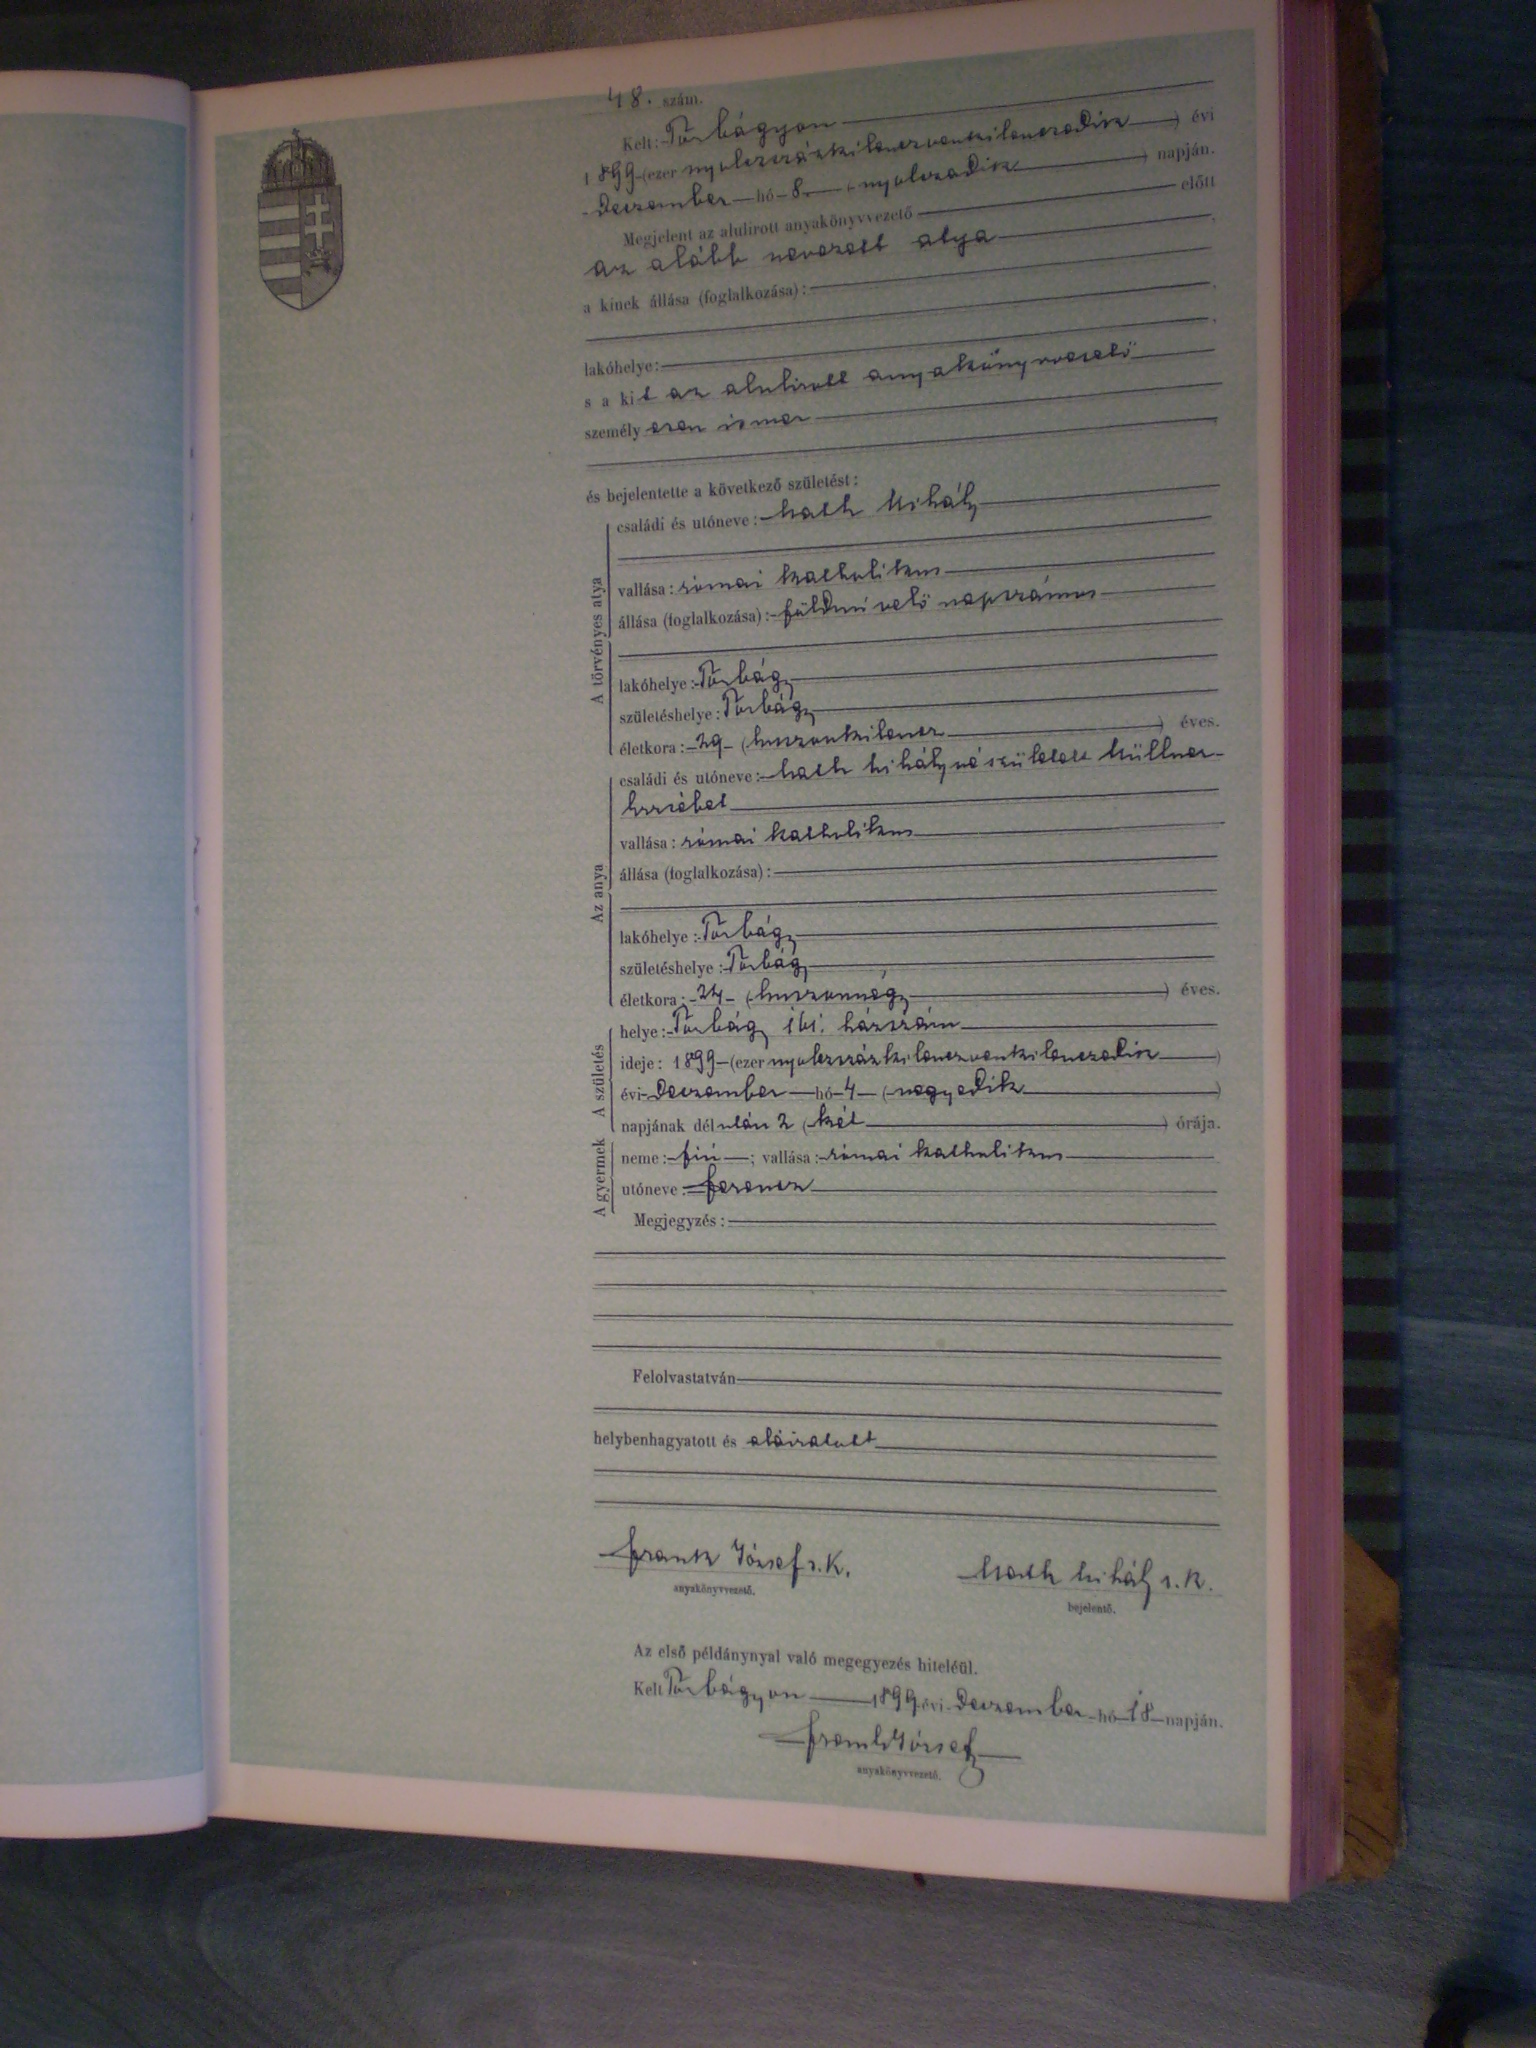 48. szám.
Kelt: Törbágyon
1899 (ezer nyolczszázkilenczvenkilenczedik) évi
Deczember hó 8. (nyolczadik) napján.
Megjelent az alulirott anyakönyvvezető előtt
az alább nevezett atya
a kinek állása (foglalkozása):
lakóhelye:
s a kit az alulirott anyakönyvvezető
személyesen ismer
és bejelentette a következő születést:
A törvényes atya
családi és utóneve: Mihály
vallása: római katholikus
állása (foglalkozása): földmívelő napszámos
lakóhelye: Törbágy
születéshelye: Törbágy
életkora: 29 (huszonkilencz) éves.
Az anya
családi és utóneve: Mihályné született
Erzsébet
vallása: római katholikus
állása (foglalkozása):
lakóhelye: Törbágy
születéshelye: Törbágy
életkora: 24 (huszonnégy) éves.
A születés
helye: Törbágy 161. házszám
ideje: 1899 (ezer nyolczszázkilenczvenkilenczedik)
évi Deczember hó 4 (negyedik)
napjának délután 2 (két) órája.
A gyermek
neme: fiú; vallása: római katholikus
utóneve: Ferencz
Megjegyzés:
Felolvastatván
helybenhagyatott és aláiratott
József s. k. Mihály s. k.
anyakönyvvezető. bejelentő.
Az első példánynyal való megegyezés hiteléül.
Kelt Törbágyon 1899 évi Deczember hó 18 napján.
József
anyakönyvvezető.